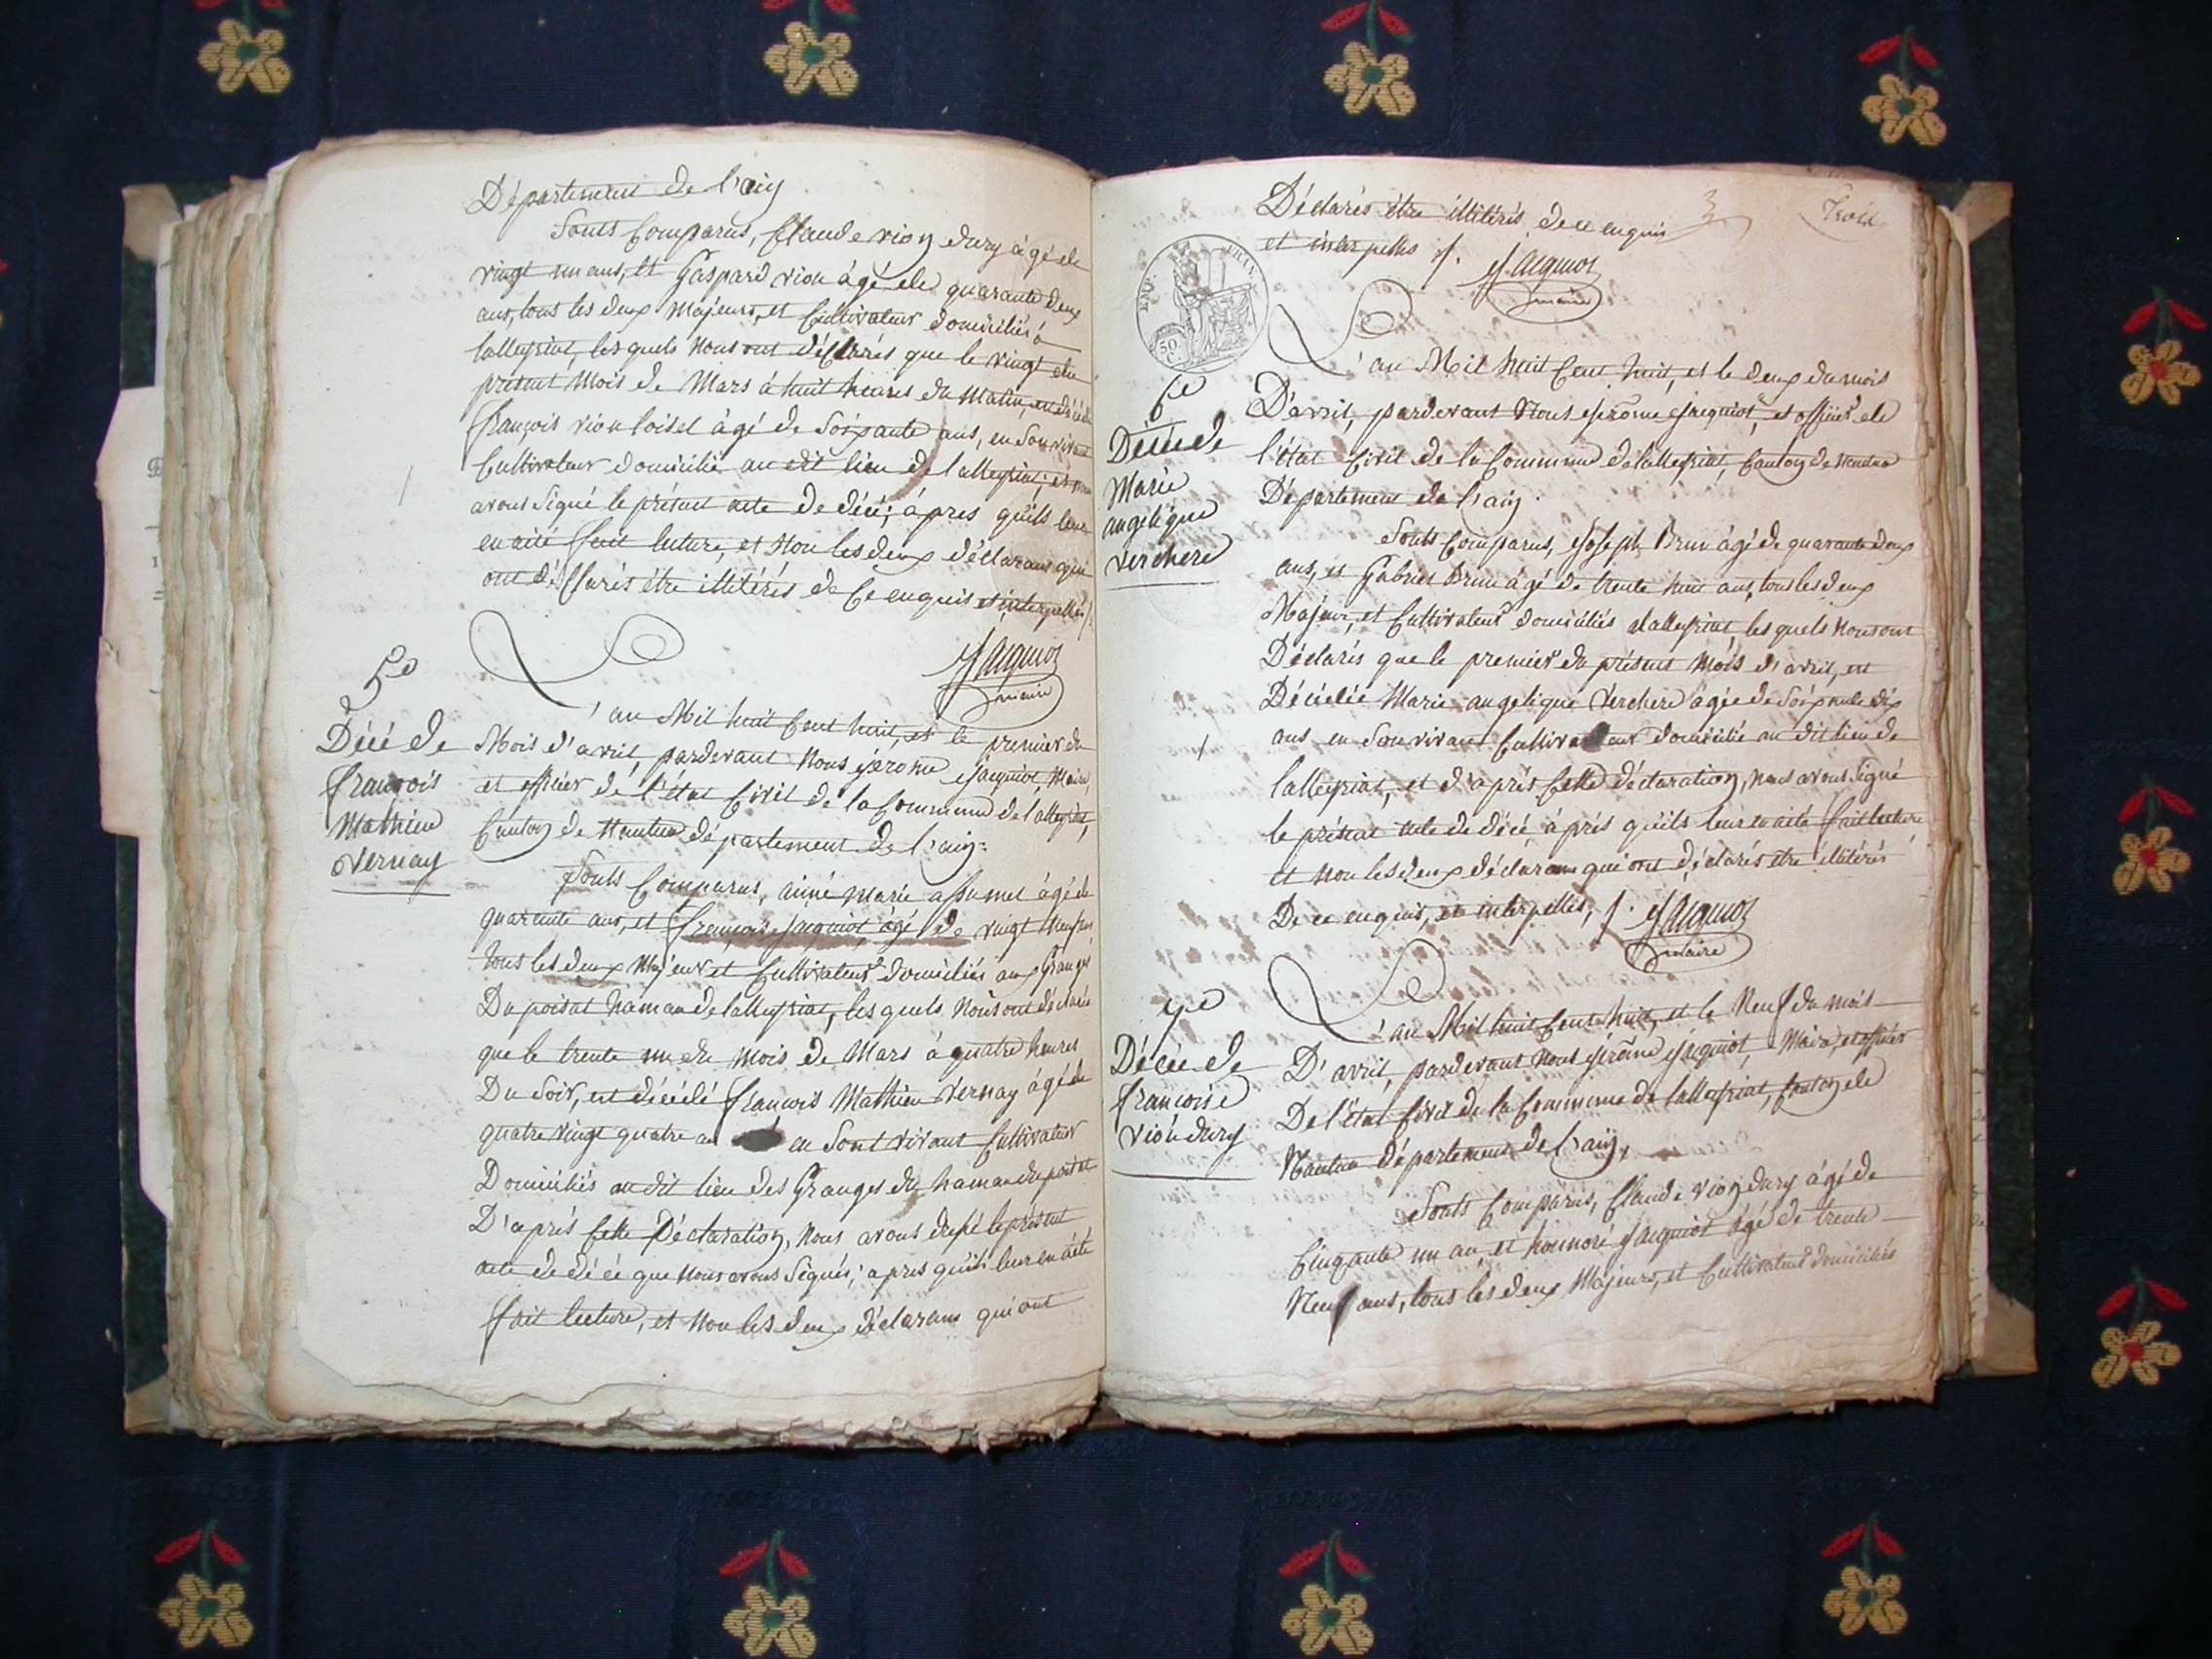 Département de l'ain
Sonts Comparus, Claude vion dury âgé de
vingt un ans, et Gaspard vion âgé de quarante deux
ans, tous les deux Majeurs, et Cultivateur domiciliés à
lalleyriat, les quels Nous ont déClarés que le vingt du
présent Mois de Mars à huit heures du Matin, est décédé
François vion loisel âgé de Soixante ans, en Son vivant
Cultivateur domicilié au dit lieu de lalleyriat; et nous
avons Signé le présent acte de décé; âpres qu'ils leur
en aité fait lecture, et Non les deux déclarans qui
ont déClarés être illitérés de Ce enquis et interpellés /.
Jacquiot
maire
5e
Décé de
françois
Mathieu
vernay
L'an Mil huit Cent huit, et le premier du
Mois d'avril, pardevant Nous Jérome Jacquiot, Maire,
et officier de l'état Civil de la Commune de lalleyriat,
Canton de Nantua département de l'ain.
Sonts Comparus, aimé marie assumel âgé de
quarante ans, et françois Jacquiot, âgé de vingt neuf ans
tous les deux Majeur et Cultivateur domiciliés aux Granges
Du poisat hamau de lalleyriat, les quels Nous ont déclarés
que le trente un du Mois de Mars à quatre heures
Du Soir, est décédé françois Mathieu vernay âgé de
quatre vingt quatre an en Sont vivant Cultivateur
Domiciliés au dit lieu des Granges du hamau du poisat
D'après Cette Déclaration, Nous avons dressé le présent
acte de décé que Nous avons Signés; apres qu'ils leur en aité
fait lecture, et Non les deux déclarans qui ont
3
Trois
Déclarés être illitérés, de ce enquis
et interpellés /.
Jacquiot
maire
EMP. FRAN.
50 C.
6e
Décé de
Marie
angélique
verchere
L'an Mil huit Cent huit, et le deux du mois
D'avril, pardevant Nous Jérôme Jacquiot, et officier de
l'état Civil de la Commune de lalleyriat, Canton de Nantua
Département de l'ain.
Sonts Comparus, Joseph Brun âgé de quarante deux
ans, et Gabriel Brun âgé de trente huit ans, tous les deux
Majeur, et Cultivateur domiciliés à lalleyriat, les quels Nous ont
Déclarés que le premier du présent Mois d'avril, est
Décédée Marie angelique verchere âgée de Soixante dix
ans en Son vivant Cultivateur domicilié au dit lieu de
lalleyriat, et d'après Cette déclaration, Nous avons Signé
le présent acte de décé, âprés qu'ils leur en aité fait lecture
et Non les deux déclarans qui ont déclarés être illitérés
De ce enquis, et interpellés, /. Jacquiot
maire
7e
Décée de
françoise
vion dury
L'an Mil huit Cent huit, et le Neuf du mois
D'avril, pardevant Nous Jérôme Jacquiot, Maire, et officier
De l'état Civil de la Commune de lalleyriat, Canton de
Nantua département de l'ain,
Sonts Comparus, Claude vion dury âgé de
Cinquante un an, et honnoré Jacquiot âgé de trente
Neuf ans, tous les deux Majeurs, et Cultivateur domiciliés